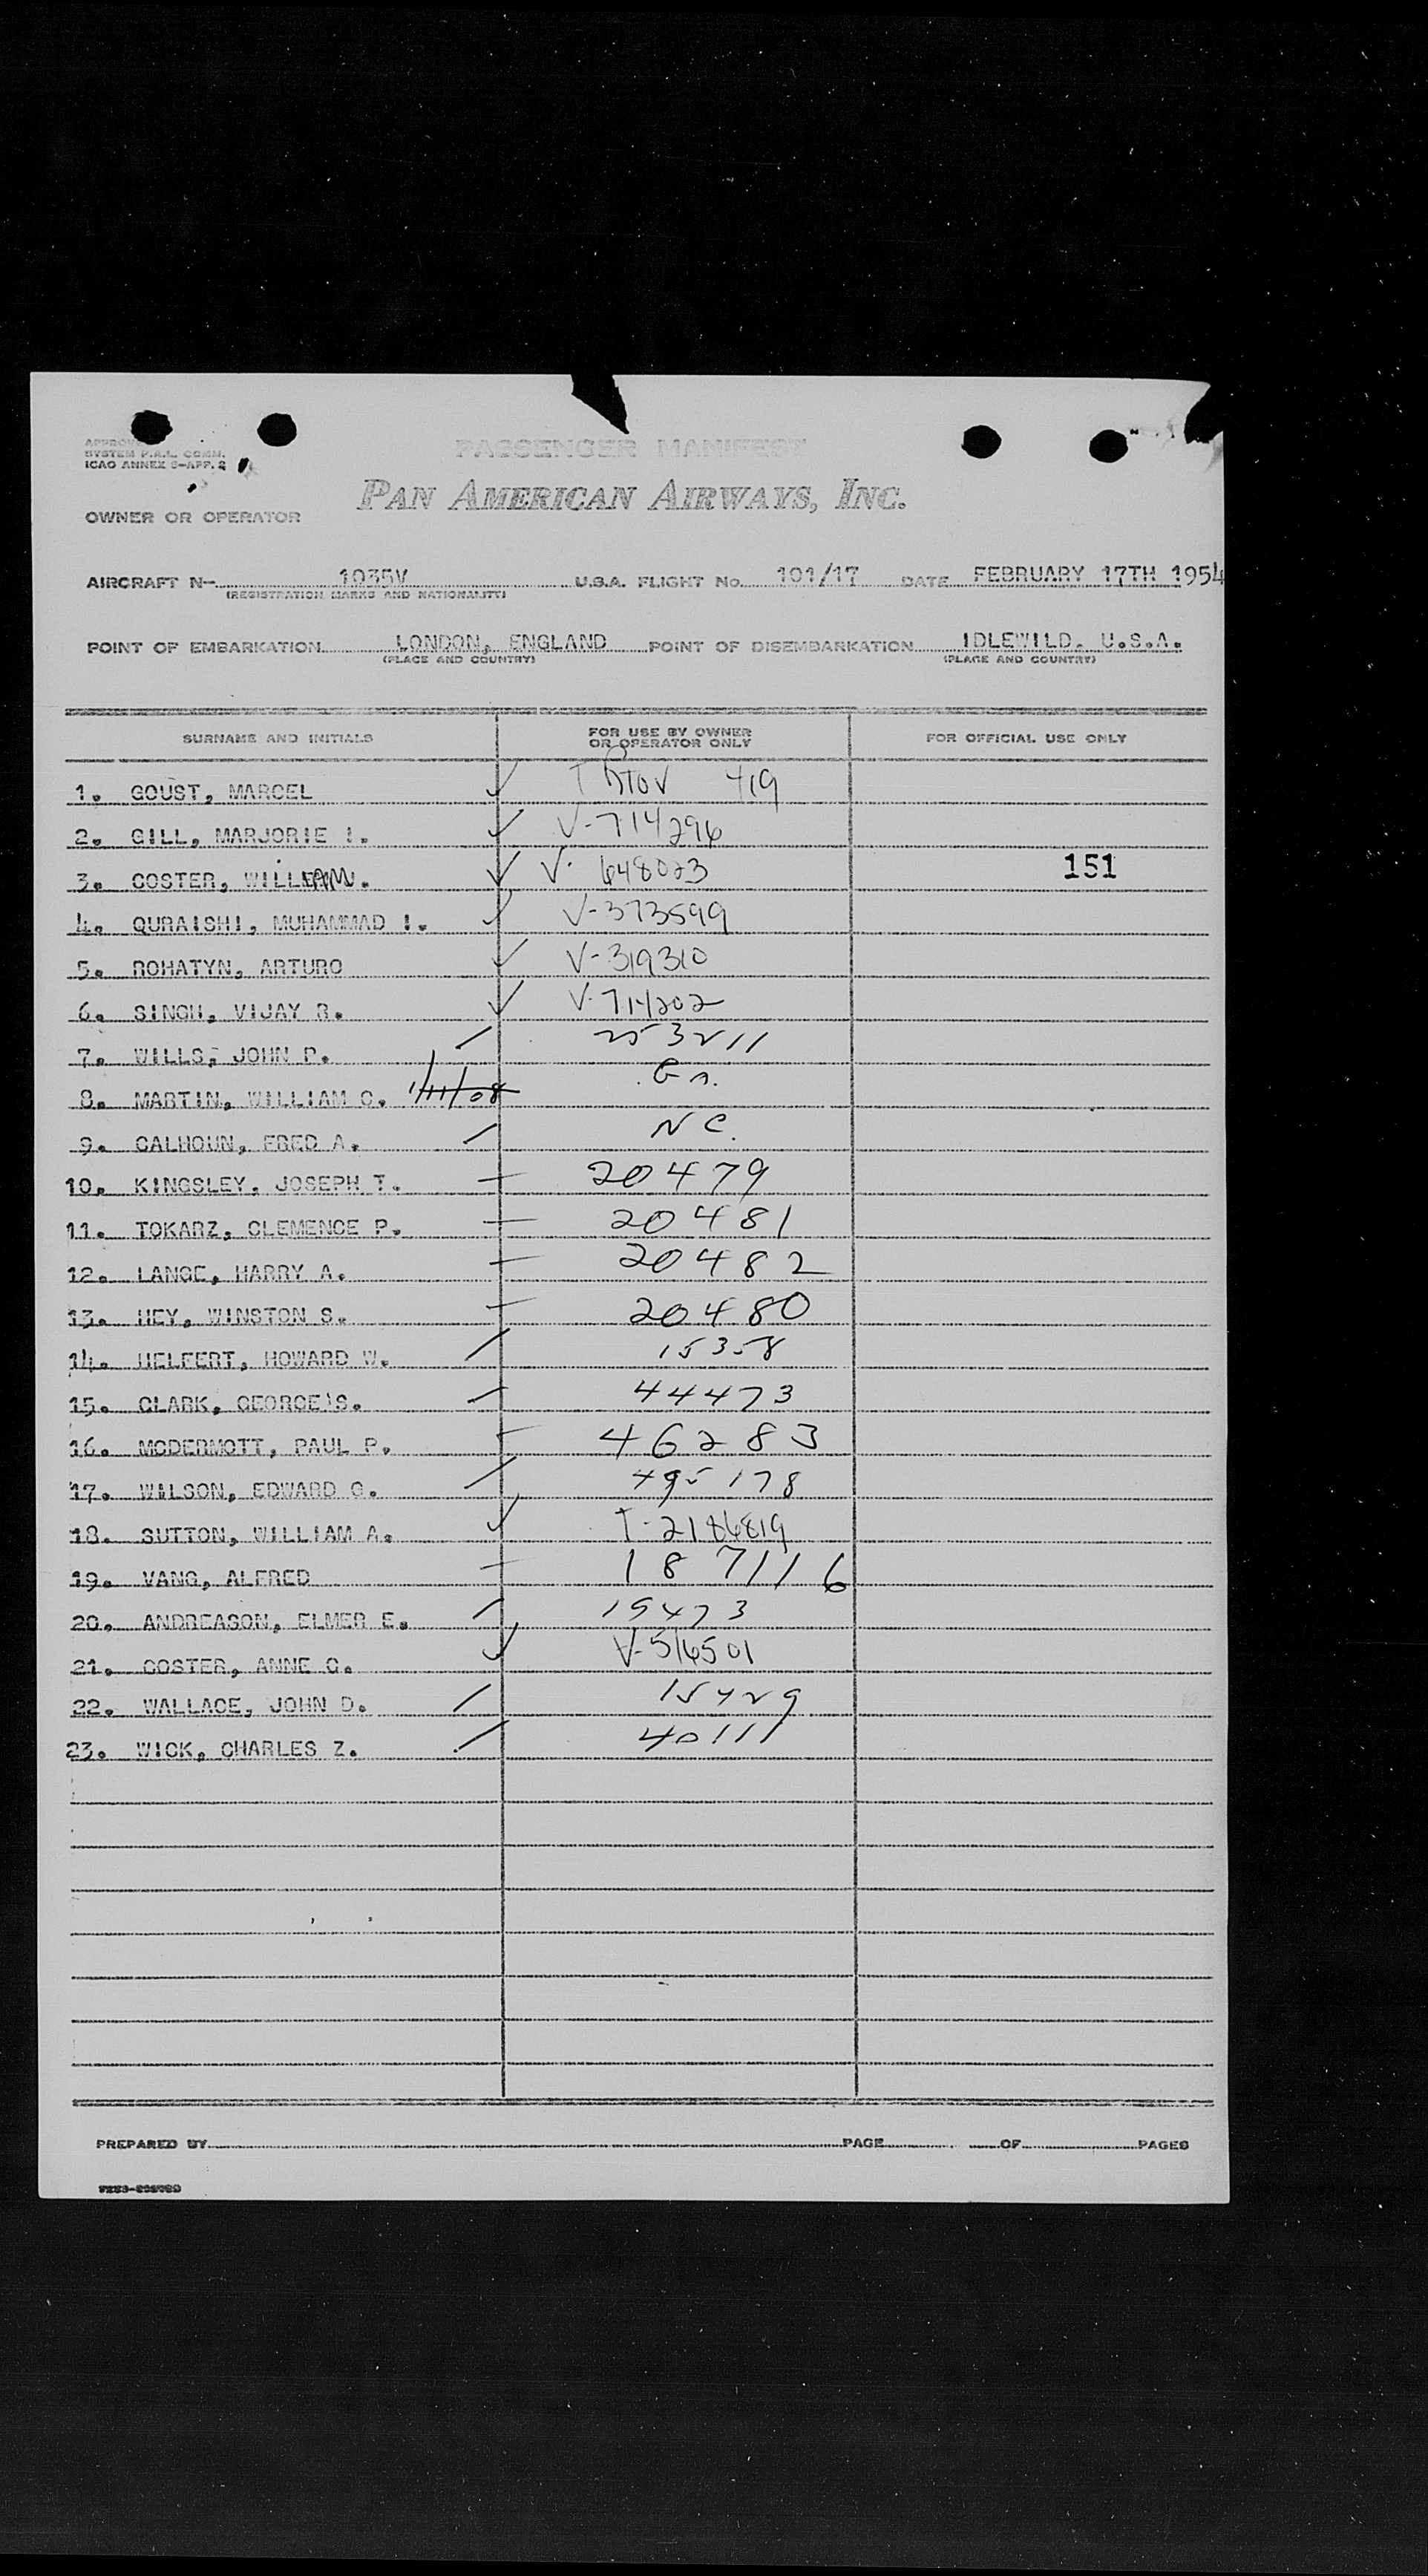 SYSTEM P.A.L. COMM.
ICAO ANNEX 9-APP. 2
PASSENGER MANIFEST
PAN AMERICAN AIRWAYS, INC.
OWNER OR OPERATOR
AIRCRAFT N- 1035V U.S.A. FLIGHT No. 101/17 DATE FEBRUARY 17TH 1954
(REGISTRATION MARKS AND NATIONALITY)
POINT OF EMBARKATION LONDON, ENGLAND POINT OF DISEMBARKATION IDLEWILD. U.S.A.
(PLACE AND COUNTRY) (PLACE AND COUNTRY)
SURNAME AND INITIALS FOR USE BY OWNER OR OPERATOR ONLY FOR OFFICIAL USE ONLY
1. GOUST, MARCEL ✓ 419
2. GILL, MARJORIE I. ✓ V-714296
3. COSTER, WILLIAM. ✓ V- 648023 151
4. QURAISHI, MUHAMMAD I. ✓ V-373599
5. ROHATYN, ARTURO ✓ V-319310
6. SINGH, VIJAY R. ✓ V-714202
7. WILLS, JOHN P. / 253211
8. MARTIN, WILLIAM C. 1/11/08 Ga.
9. CALHOUN, FRED A. / N C.
10. KINGSLEY, JOSEPH T. — 20479
11. TOKARZ, CLEMENCE P. — 20481
12. LANGE, HARRY A. — 20482
13. HEY, WINSTON S. — 20480
14. HELFERT, HOWARD W. / 15358
15. CLARK, GEORGE S. / 44473
16. MCDERMOTT, PAUL P. — 46283
17. WILSON, EDWARD G. / 495178
18. SUTTON, WILLIAM A. ✓ T-2186819
19. VANG, ALFRED — 187116
20. ANDREASON, ELMER E. / 15473
21. COSTER, ANNE G. ✓ V-516501
22. WALLACE, JOHN D. / 15429
23. WICK, CHARLES Z. / 40111
PREPARED BY PAGE OF PAGES